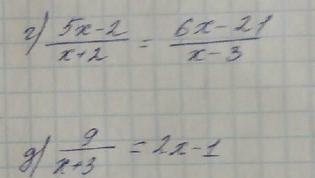 г) (5x-2)/(x+2) = (6x-21)/(x-3)
д) 9/(x+3) = 2x-1